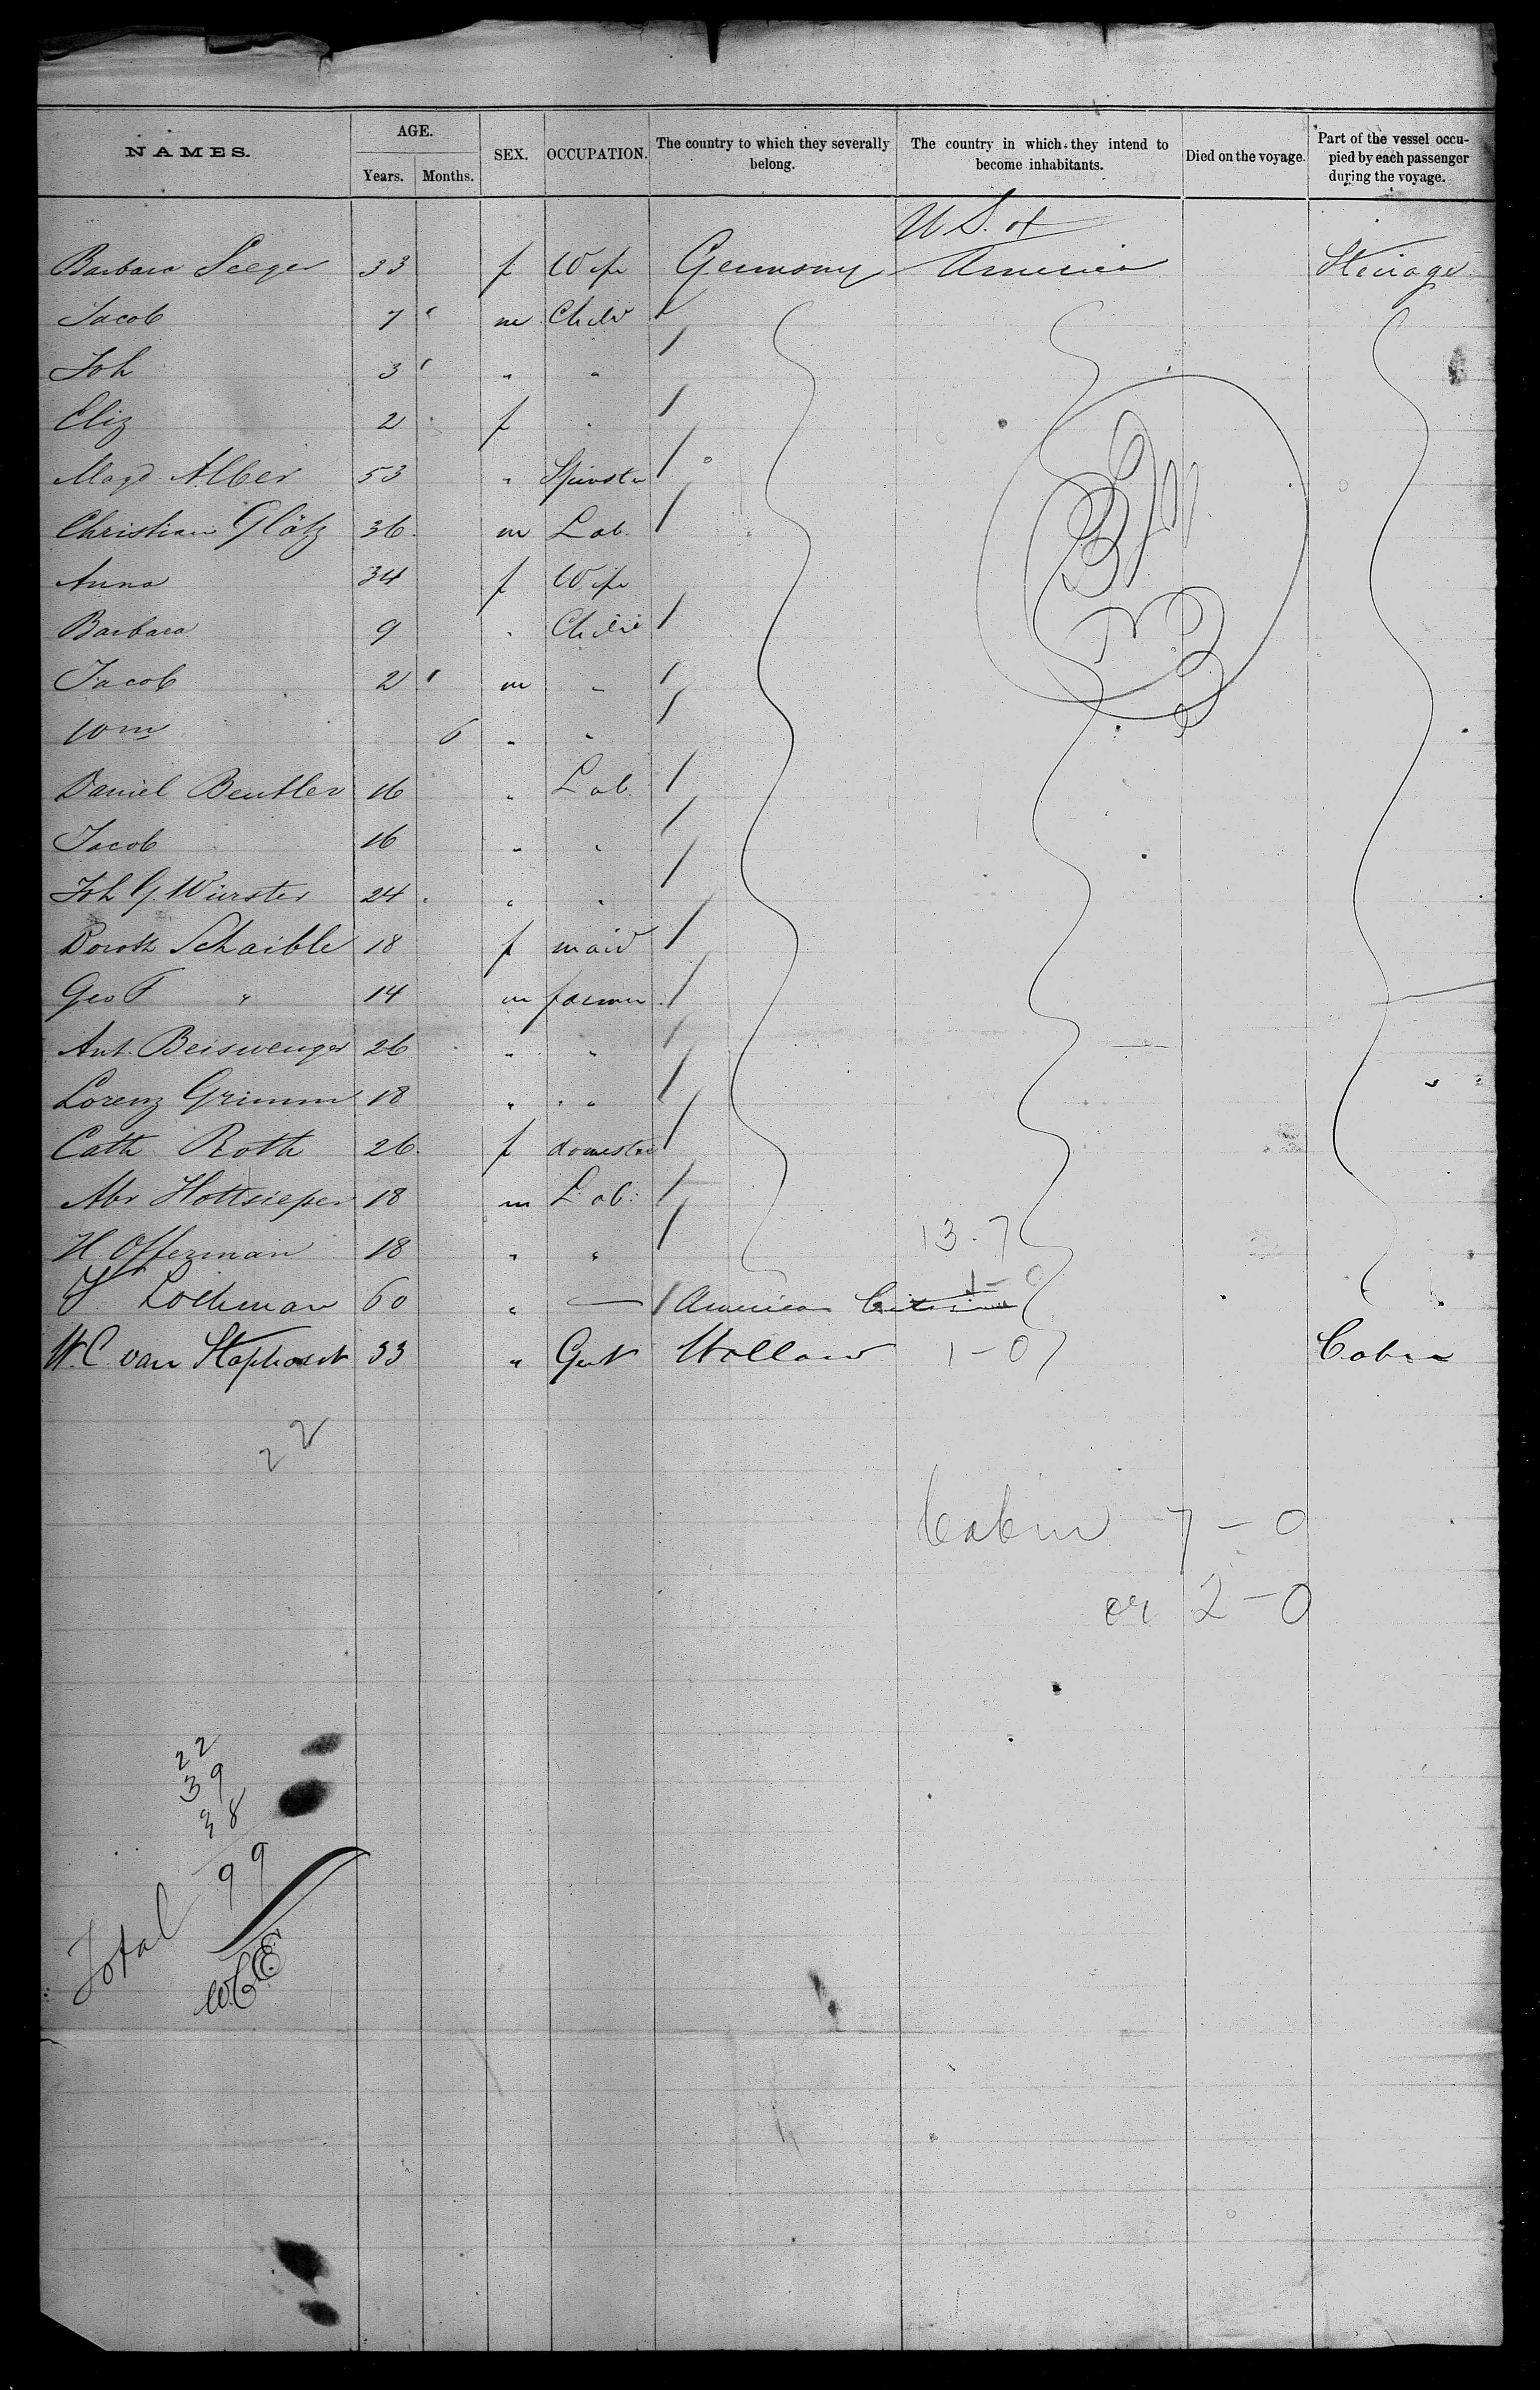 NAMES. AGE. Years. Months. SEX. OCCUPATION. The country to which they severally belong. The country in which they intend to become inhabitants. Died on the voyage. Part of the vessel occupied by each passenger during the voyage.
U S. of
Barbara Seeger 33 f Wife Germany America Steerage
Jacob 7 m Child
Joh 3 " "
Eliz 2 f "
Magd Alber 53 " Spinster
Christian Glätz 36 m Lab.
Anna 34 f Wife
Barbara 9 " Child
Jacob 2 m "
Wm 6 " "
Daniel Beutler 16 " Lab.
Jacob 16 " "
Joh G. Würster 24 " "
Doroth Schaible 18 f maid
Geo F " 14 m farmer
Ant. Beiswenger 26 " "
Lorenz Grimm 18 " "
Cath Roth 26 f domestic
Abr Hottsieper 18 m Lab.
H. Offerman 18 " " 13-7
Lochman 60 " — American Citizen 1-0
W. C. van Staphorst 33 " Gent Holland 1-0 Cabin
22
Cabin 7-0
or 2-0
22
39
38
Total 99
W.C.E